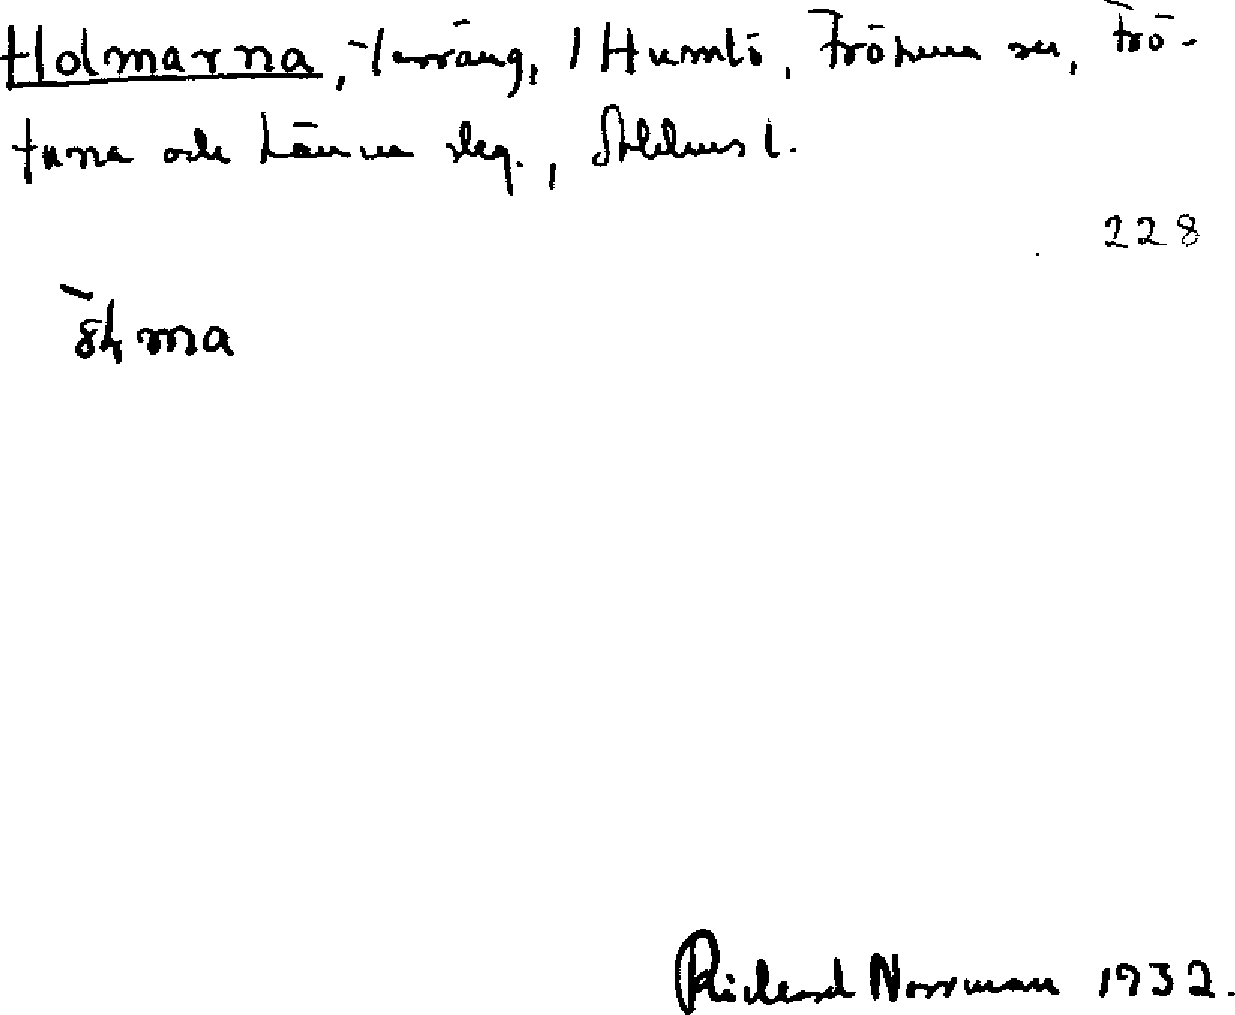 Holmarna, terräng, 1 Humlö, Frötuna sn, Frö-
tuna och Länna skg., Sthlms l.
228
Richard Norrman 1932.